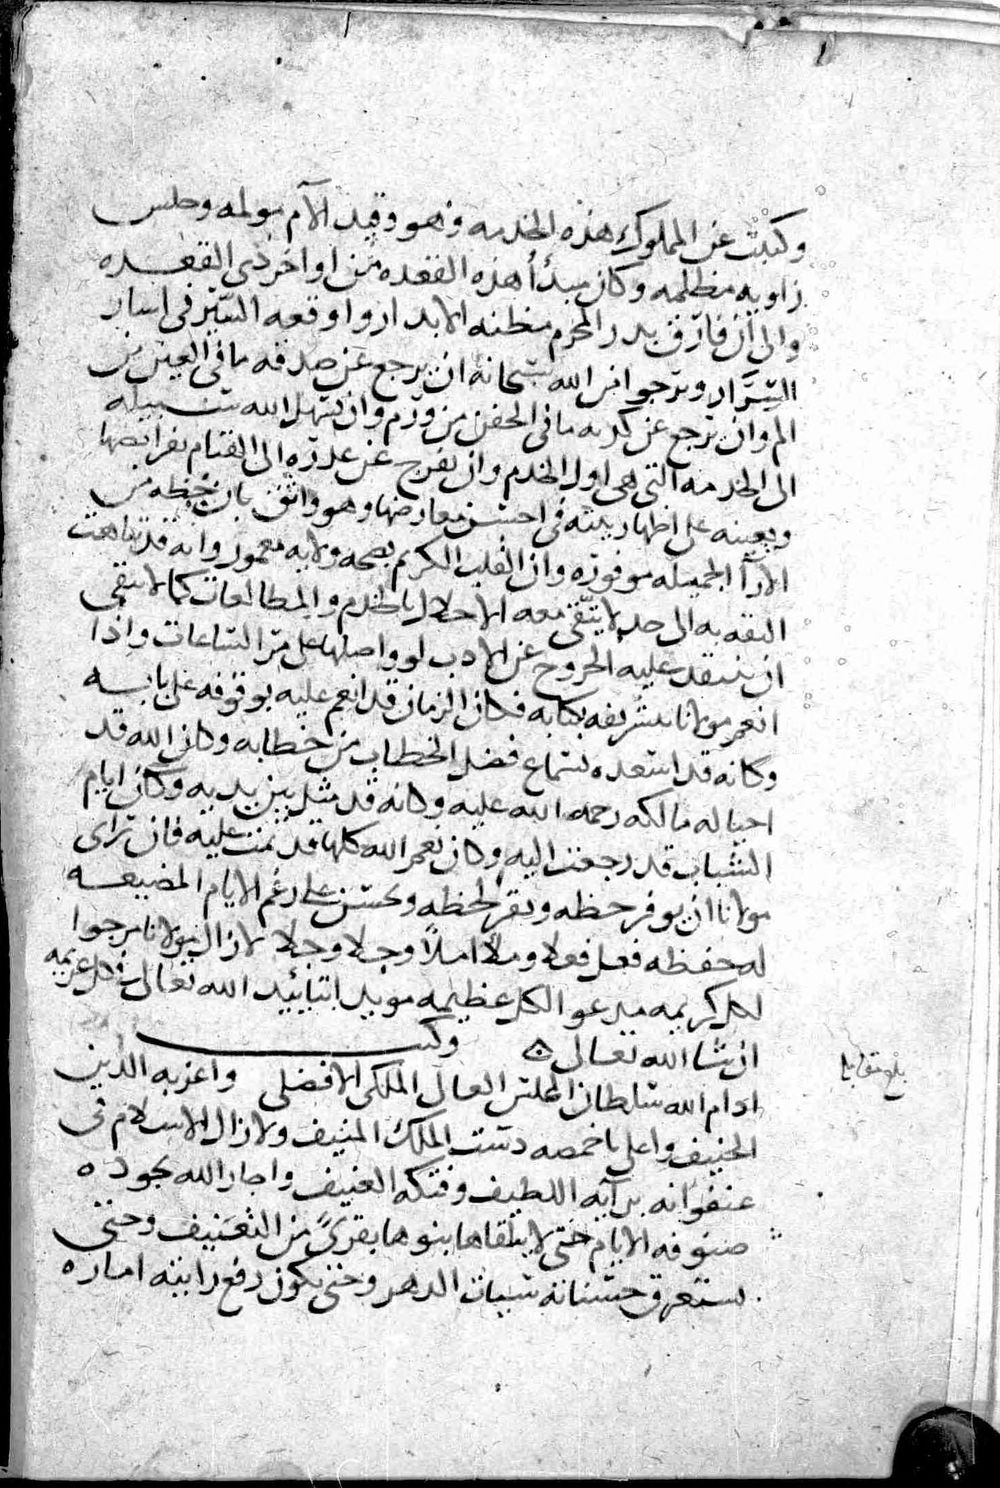 وكتبت عن المملوك هذه الخدمه وهو وقيد الآم مولمه وحلس
زاويه مظلمه وكان مبدأ هذه القعده من اواخر ذى القعده
والى ان فارق بدر المحرم مظنه الابدار واوقعه السير فى اسار
السرار ويرجوا من الله سبحانه ان يرجع عن صدفه ما فى العين من
الم وان يرجع عن كدبه ما فى الجفن من ورم وان يسهل الله سبيله
الى الخدمه التى هى اول الخدم وان يفرج عن عذره الى القيام بفرايضها
ويعينه على اظهار نيته فى احسن معارضها وهو واثق بان حظه من
الارآ الجميله موفوره وان القلب الكريم بصحه ولايه معمور وانه قد تناهت
الثقه به الى حد لا يتقى معه الاخلال بالخدم والمطالعات كما لا يتقى
ان ينتقد عليه الخروج عن الادب لو واصلها على مر الساعات واذا
انعم مولانا بتشريفه بكتابه فكان الزمان قد انعم عليه بوقوفه على بابه
وكانه قد استعده لسماع فضل الخطاب من خطابه وكان الله قد
احيا له مالكه رحمه الله عليه وكانه قد مثل بين يديه وكان ايام
الشباب قد رجعت اليه وكان نعم الله كلها قد تمت عليه فان تراى
مولانا ان يوفر حظه ويقر لحظه ويحسن على رغم الايام المضيعه
له حفظه فعل فعلا وملا املا وجلا وجلا لا زال مولانا مرجوا
لكل كريمه مدعوا لكل عظيمه مويدا بتاييد الله تعالى فى كل عزيمه
ان شا الله تعالى وكتب
ادام الله سلطان المجلس العالى الملكى الافضلى واعز به الدين
الحنيف واعلى باخمصه دست الملك المنيف ولا زال الاسلام فى
عنفوانه برايه اللطيف وفتكه العنيف واجار الله بجوده
صنوفه الايام حتى لا يتلقاها بنوها بقرى من التعنيف وحتى
يستغرق حسناته سيات الدهر وحتى يكون رفع رايته اماره
بلغ مقابله